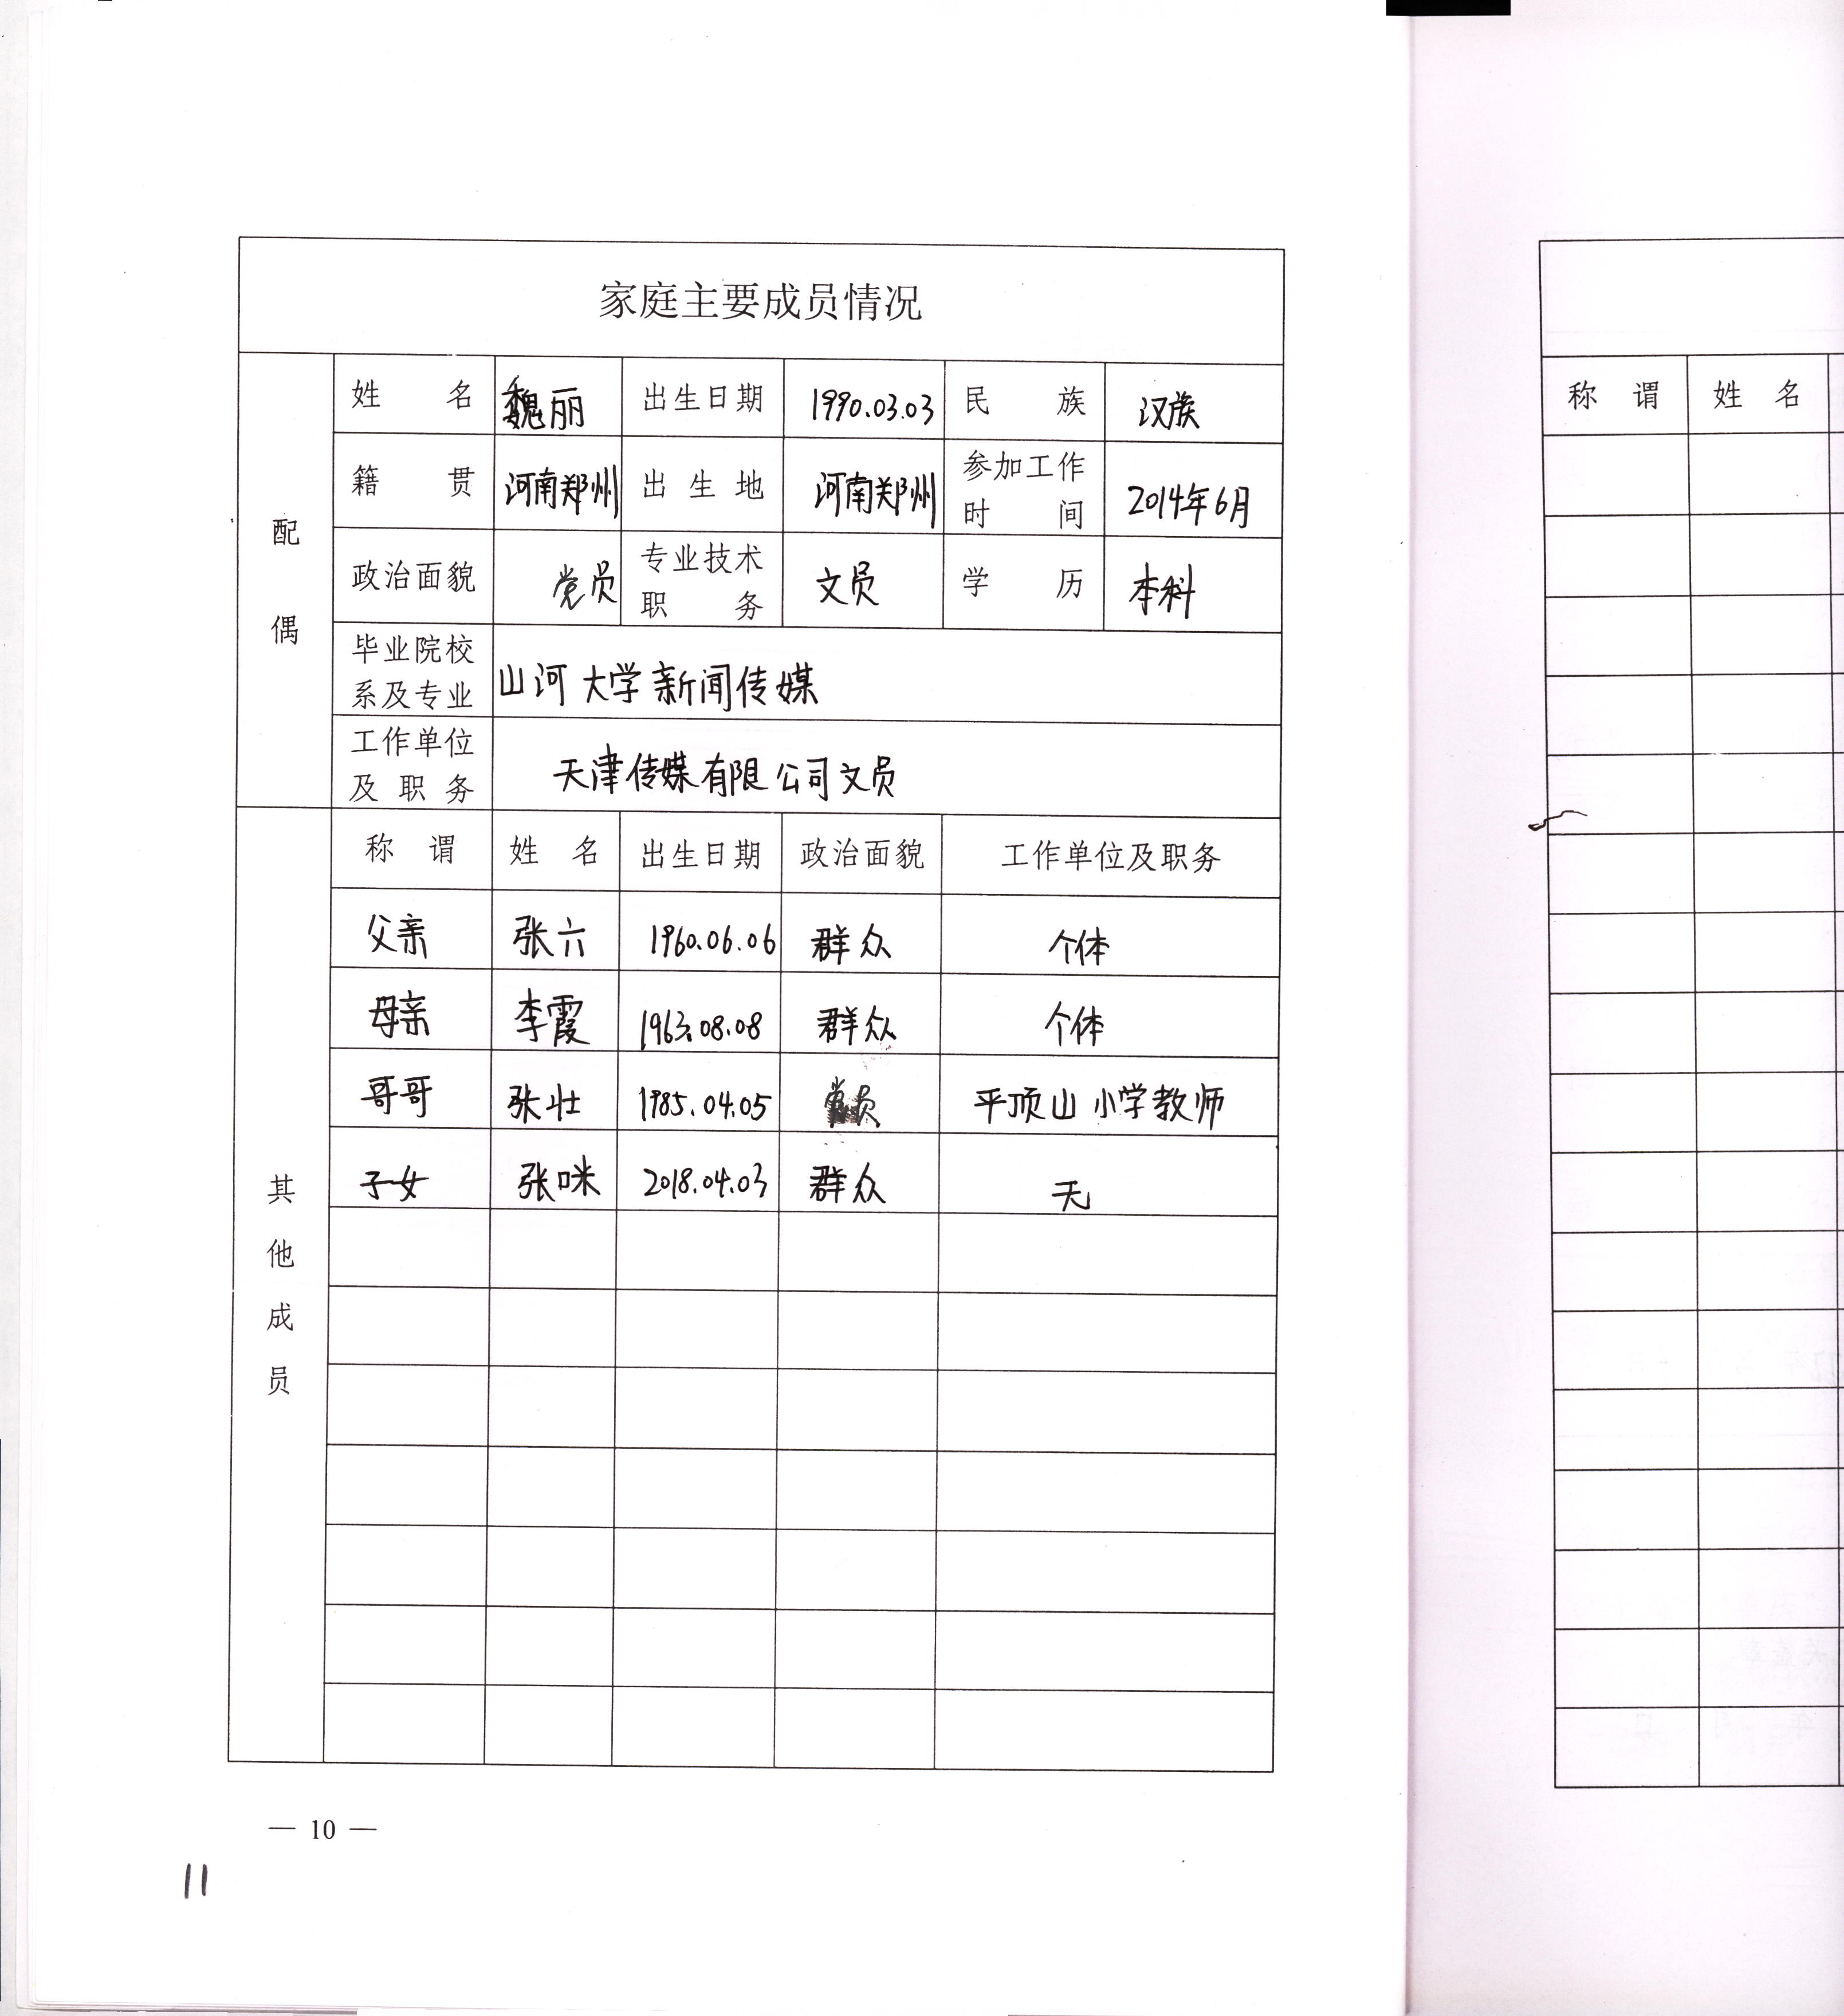 家庭主要成员情况
配偶
姓名 魏丽 出生日期 1990.03.03 民族 汉族
籍贯 河南郑州 出生地 河南郑州 参加工作时间 2014年6月
政治面貌 党员 专业技术职务 文员 学历 本科
毕业院校系及专业 山河大学新闻传媒
工作单位及职务 天津传媒有限公司文员
其他成员
称谓 姓名 出生日期 政治面貌 工作单位及职务
父亲 张六 1960.06.06 群众 个体
母亲 李霞 1963.08.08 群众 个体
哥哥 张壮 1985.04.05 党员 平顶山小学教师
子女 张咪 2018.04.03 群众 无
— 10 —
11
称谓 姓名